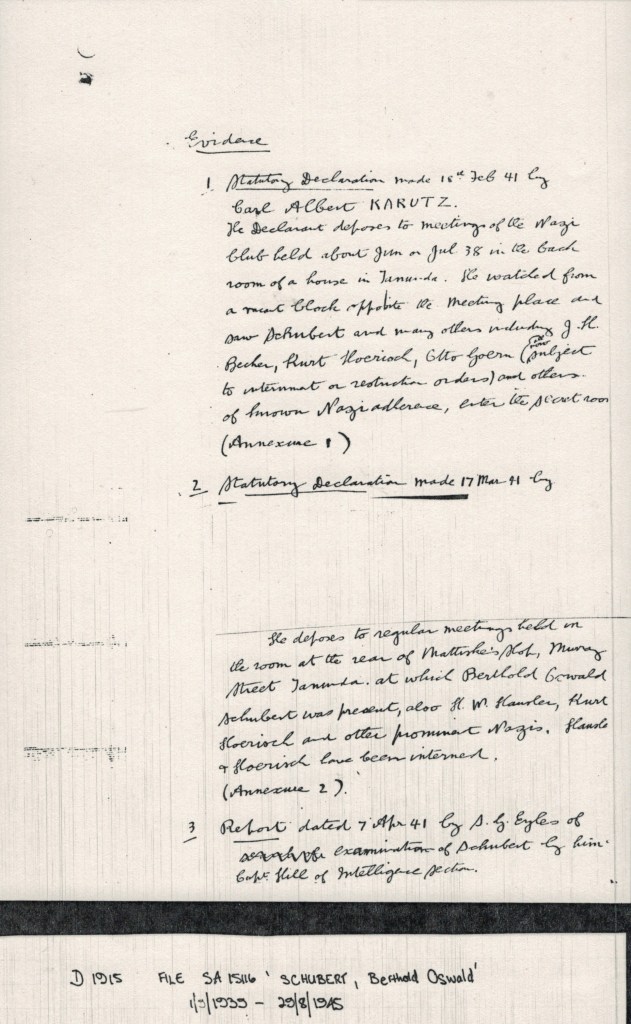 Evidence
1 Statutory Declaration made 18th Feb 41 by
Carl Albert KARUTZ.
The Declarant deposes to meetings of the Nazi
Club held about Jun or Jul 38 in the back
room of a house in Tanunda. He watched from
a vacant block opposite the meeting place and
saw Schubert and many others including J. H.
Becker, Kurt Hoerisch, Otto Goern (all now subject
to internment or restriction orders) and others
of known Nazi adherence, enter the secret room
(Annexure 1)
2 Statutory Declaration made 17 Mar 41 by
He deposes to regular meetings held in
the room at the rear of Mattiske's Shop, Murray
Street Tanunda. at which Berthold Oswald
Schubert was present, also H. W. Hausler, Kurt
Hoerisch and other prominent Nazis. Hausler
& Hoerisch have been interned.
(Annexure 2).
3 Report dated 7 Apr 41 by S. G. Eyles of
examination of Schubert by him.
Capt. Hill of Intelligence Section.
D 1915 FILE SA 15116 'SCHUBERT, Berthold Oswald'
1/9/1939 - 29/8/1945